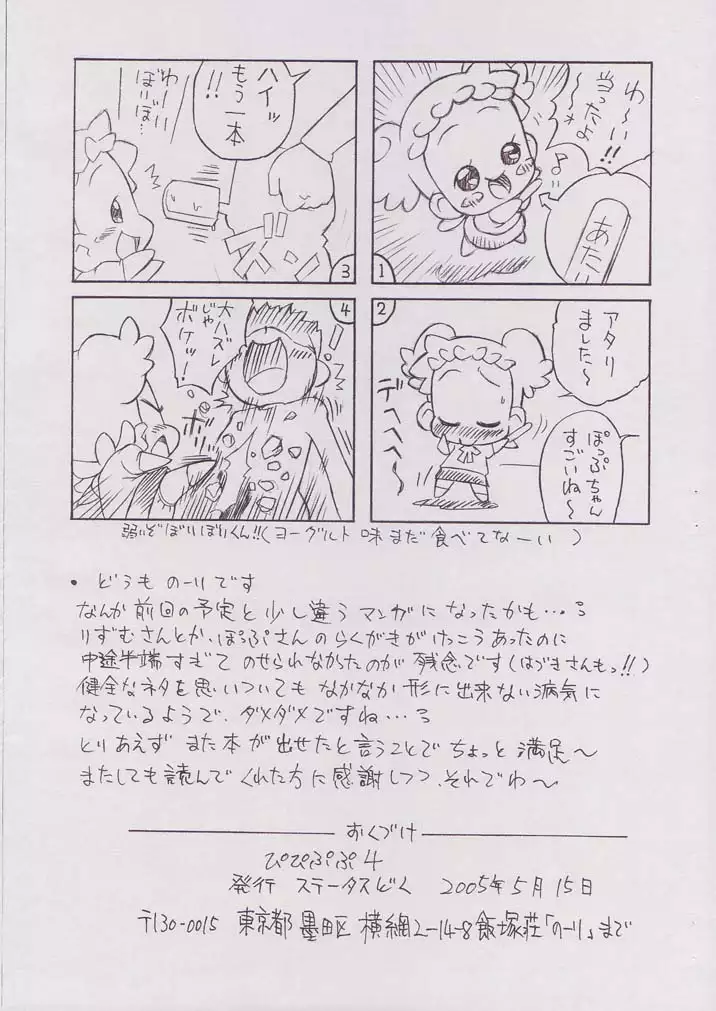 1
わ〜い!!
当ったよ
〜〜*
♪
あたり
2
アタリ
ましたー〜
ぽっぷちゃん
すごいね〜
デヘヘヘ〜
3
ハイッ
もう一本
!!
わーい
ぼいぼい…
ズズン
4
大ハズレ
じゃ
ボケッ!
弱いぞぼいぼいくん!!(ヨーグルト味まだ食べてなーい)
・どうものーりです
なんか前回の予定と少し違うマンガになったかも…。
りずむさんとか、ぽっぷさんのらくがきがけっこうあったのに
中途半端すぎてのせられなかったのが残念です(はづきさんもっ!!)
健全なネタを思いついてもなかなか形に出来ない病気に
なっているようで、ダメダメですね…
とりあえずまた本が出せたと言うことでちょっと満足〜
またしても読んでくれた方に感謝しつつ、それでわ〜
おくづけ
ぴぴぷぷ4
発行 ステータスどく 2005年5月15日
〒130-0015 東京都墨田区横綱2-14-8飯塚荘「のーり」まで